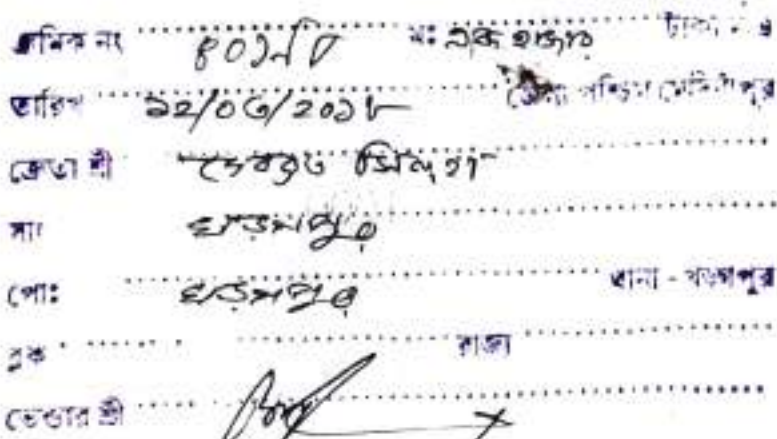 ক্রমিক নং ৪০১৮ মং এক হাজার টাকা
তারিখ ১২/০৬/২০১৮ জেলা পশ্চিম মেদিনীপুর
ক্রেতা শ্রী দেবব্রত সিনহা
সাং খড়গপুর
পোঃ খড়গপুর থানা - খড়্গপুর
ব্লক রাজ্য
ভেণ্ডার শ্রী